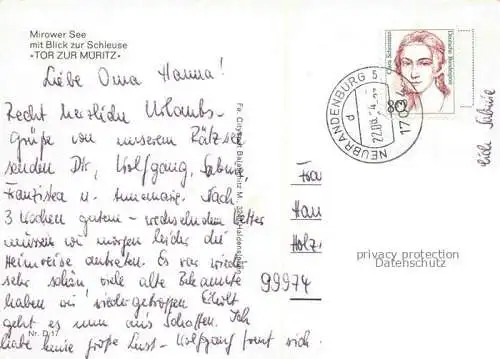 Mirower See
mit Blick zur Schleuse
»TOR ZUR MÜRITZ«
Liebe Oma Hanna!
Recht herzliche Urlaubs-
grüße von unserem Rätzsee
senden Dir, Wolfgang, Sabine
Franziska u. Annemarie. Nach
3 Wochen gutem - wechselnden Wetter
müssen wir morgen leider die
Heimreise antreten. Es war wieder
sehr schön, viele alte Bekannte
haben wir wiedergetroffen. Erholt
geht es nun ans Schaffen. Ich
habe keine große Lust - Wolfgang freut sich.
Nr. D 17
Clara Schumann
Deutsche Bundespost
80
NEUBRANDENBURG 5
d
17034
Frau
Han
Holz
99974
privacy protection
Datenschutz
eure Sabine